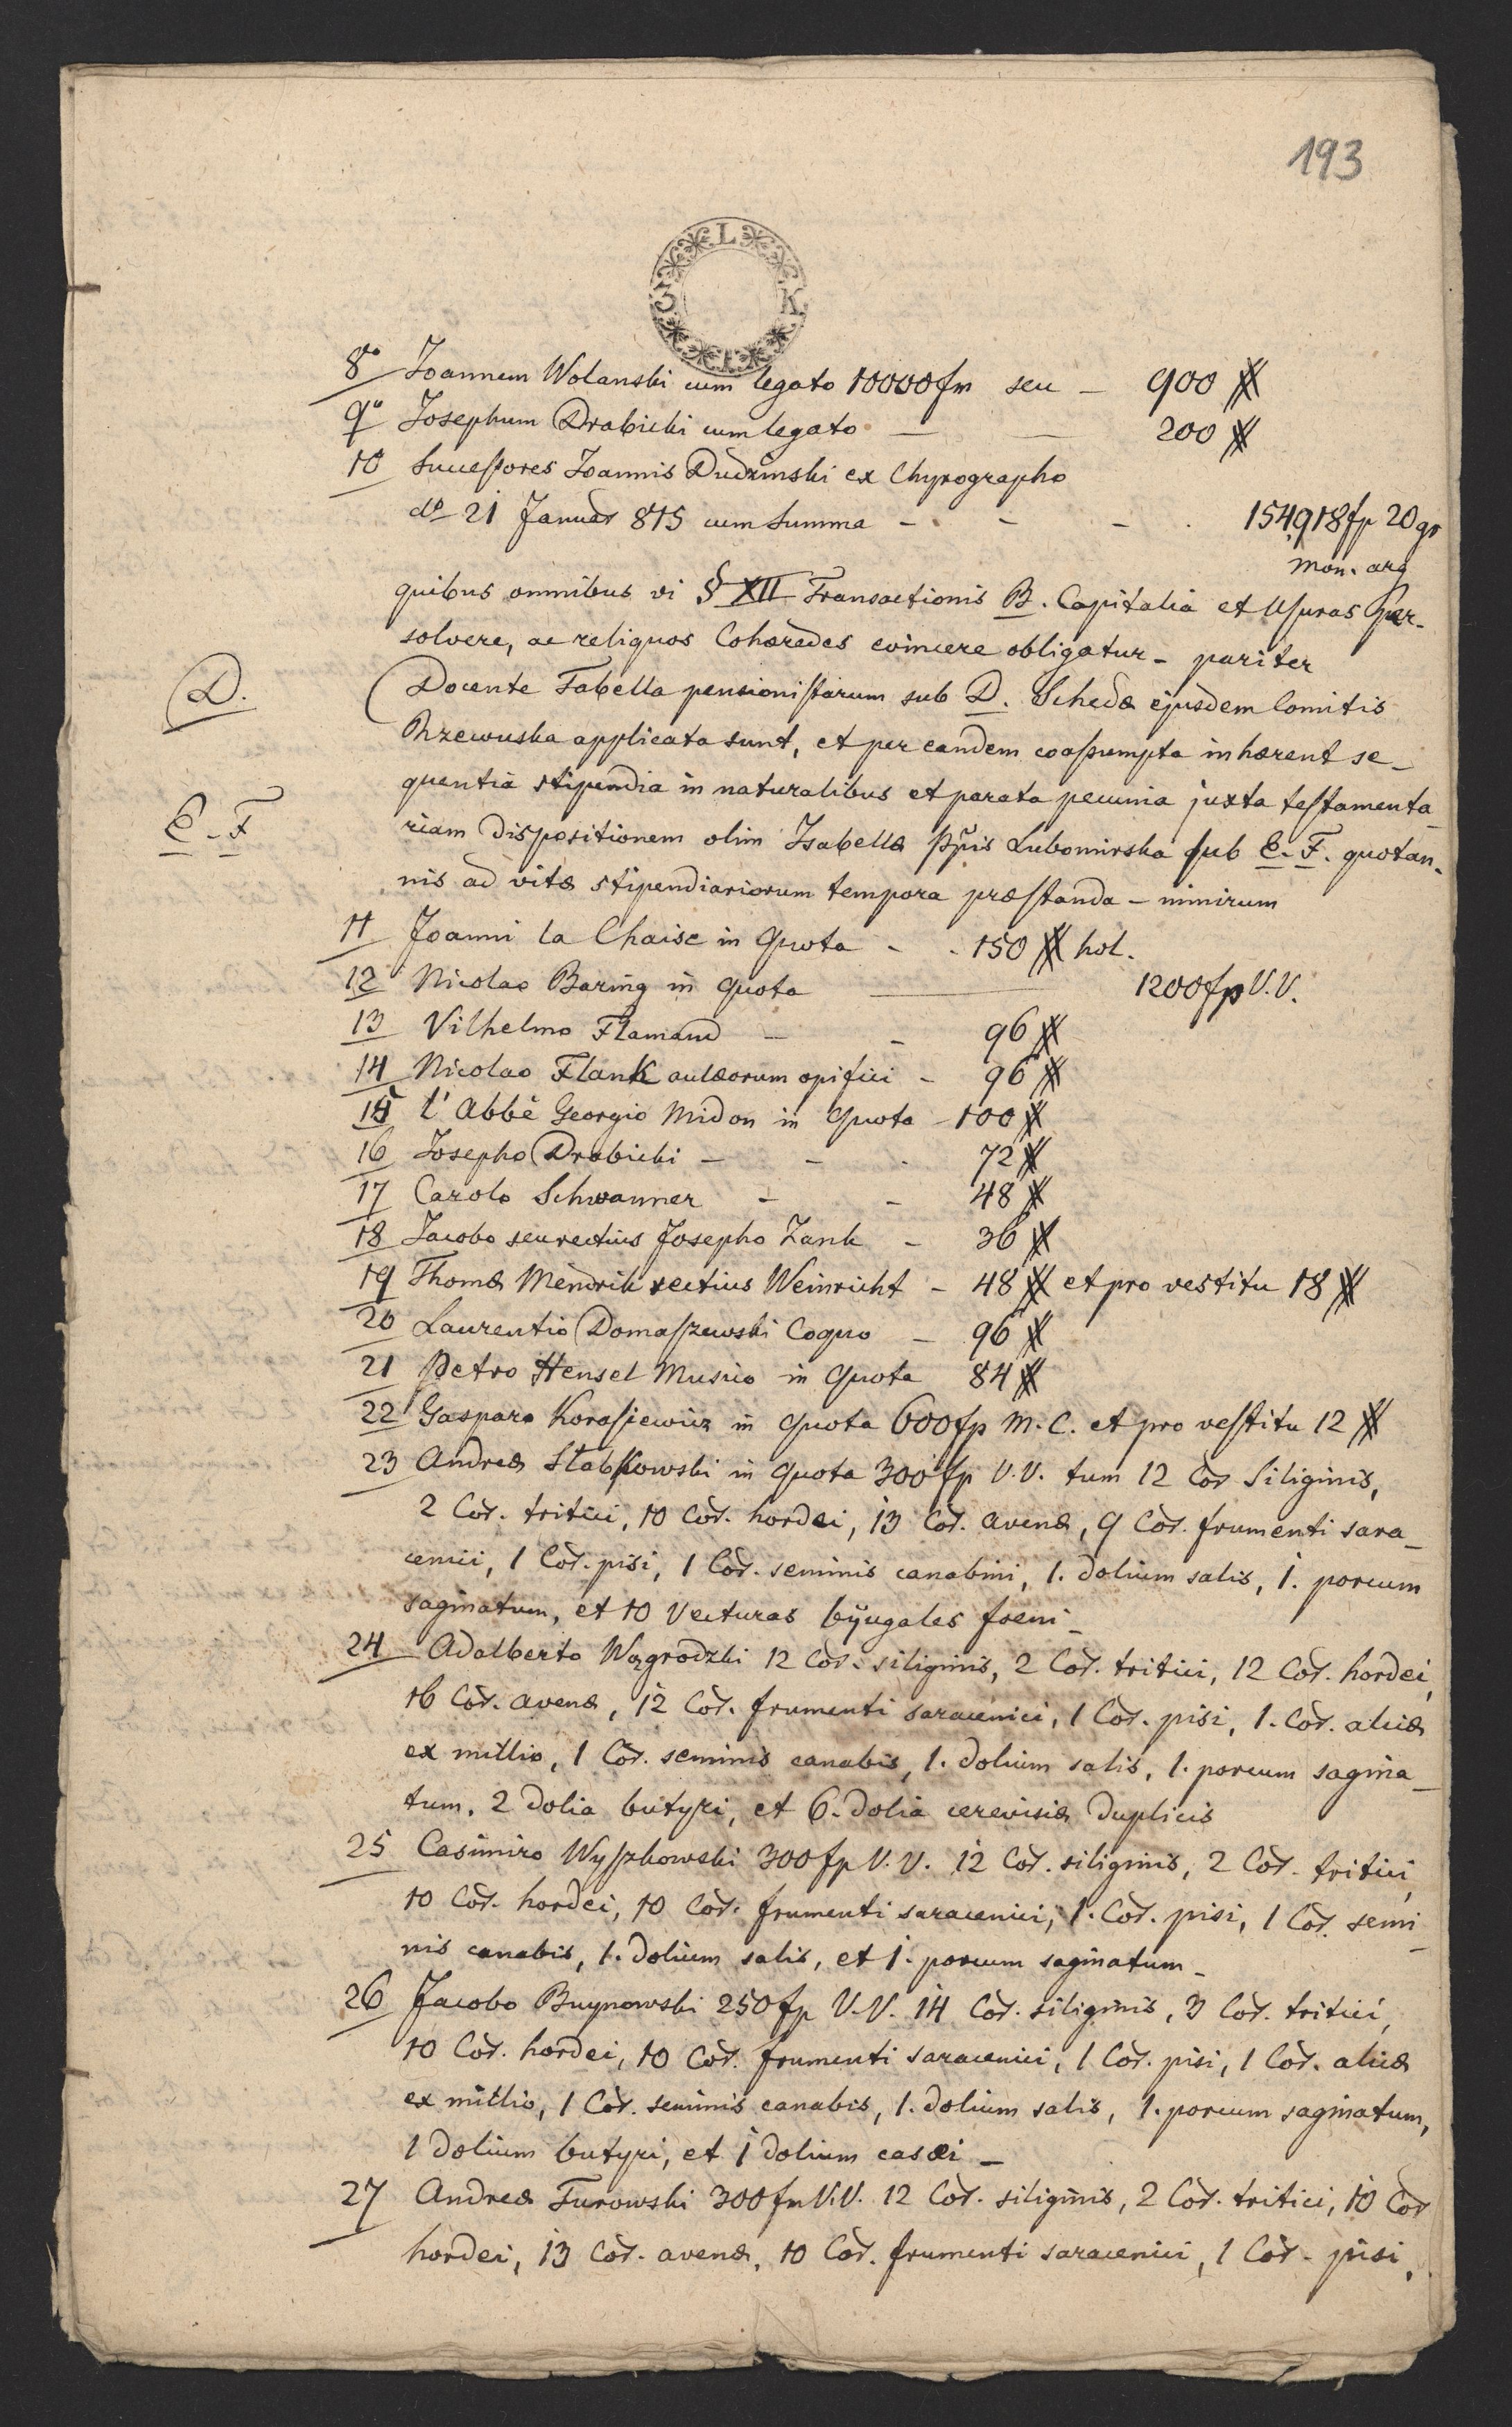 193
L
3 K
I
8o Joannem Wolanski cum legato 10000 fp seu – 900 #
9o Josephum Drabicki cum legato – – 200 #
10 Successores Joannis Dudzinski ex Chyrographo
do 21 Januar 815 cum Summa – – – 154,918 fp 20 gr
mon. arg
quibus omnibus vi § XII Transactionis B. Capitalia et Usuras per-
solvere, ac reliquos Cohæredes evincere obligatur – pariter
D.
Docente Tabella pensionistarum sub D. Schedæ ejusdem Comitis
Rzewuska applicata sunt, et per eandem coassumpta inhærent se-
E. F
quentia stipendia in naturalibus et parata pecunia juxta testamenta-
riam dispositionem olim Isabellæ Ppis Lubomirska sub E. F. quotan-
nis ad vitæ stipendiariorum tempora præstanda – nimirum
11 Joanni la Chaise in quota – - 150 # hol.
12 Nicolao Baring in quota – 1200 fp V.V.
13 Vilhelmo Flamand – – 96 #
14 Nicolao Flank aulæorum opifici – 96 #
15 l'Abbé Georgio Midon in quota – 100 #
16 Josepho Drabicki – – . 72 #
17 Carolo Schwanner – – 48 #
18 Jacobo seu rectius Josepho Zank – 36 #
19 Thomæ Mendrik rectius Weinricht – 48 # et pro vestitu 18 #
20 Laurentio Domaszewski Coquo – 96 #
21 Petro Hensel Musico in quota 84 #
22 Gasparo Korasiewicz in quota 600 fp M.C. et pro vestitu 12 #
23 Andreæ Stabkowski in quota 300 fp V.V. tum 12 Cor Siliginis,
2 Cor. tritici, 10 Cor. hordei, 13 Cor. avenæ, 9 Cor. frumenti sara-
cenici, 1 Cor. pisi, 1 Cor. seminis canabini, 1. dolium salis, 1. porcum
saginatum, et 10 Vecturas bijugales foeni –
24 Adalberto Wązgrodzki 12 Cor. siliginis, 2 Cor. tritici, 12 Cor. hordei,
16 Cor. avenæ, 12 Cor. frumenti saracenici, 1 Cor. pisi, 1. Cor. alicæ
ex millio, 1 Cor. seminis canabis, 1. dolium salis, 1. porcum sagina-
tum, 2 dolia butyri, et 6. dolia cerevisiæ duplicis
25 Casimiro Wyszkowski 300 fp V.V. 12 Cor. siliginis, 2 Cor. tritici,
10 Cor. hordei, 10 Cor. frumenti saracenici, 1. Cor. pisi, 1 Cor. semi-
nis canabis, 1. dolium salis, et 1. porcum saginatum –
26 Jacobo Buynowski 250 fp V.V. 14 Cor. siliginis, 3 Cor. tritici,
10 Cor. hordei, 10 Cor. frumenti saracenici, 1 Cor. pisi, 1 Cor. alicæ
ex millio, 1 Cor. seminis canabis, 1. dolium salis, 1. porcum saginatum,
1 dolium butyri, et 1 dolium casei –
27 Andreæ Turowski 300 fp V.V. 12 Cor. siliginis, 2 Cor. tritici, 10 Cor
hordei, 13 Cor. avenæ, 10 Cor. frumenti saracenici, 1 Cor. pisi,